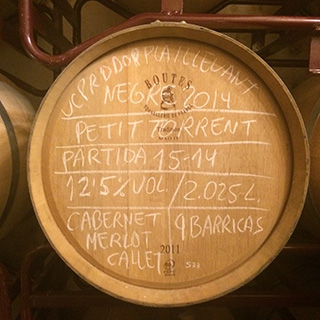 VCPRDDOP PLA I LLEVANT
BOUTES
NEGRE 2014
PETIT TORRENT
PARTIDA 15-14
12'5% VOL. / 2.025 L.
CABERNET 9 BARRICAS
MERLOT
CALLET
2011